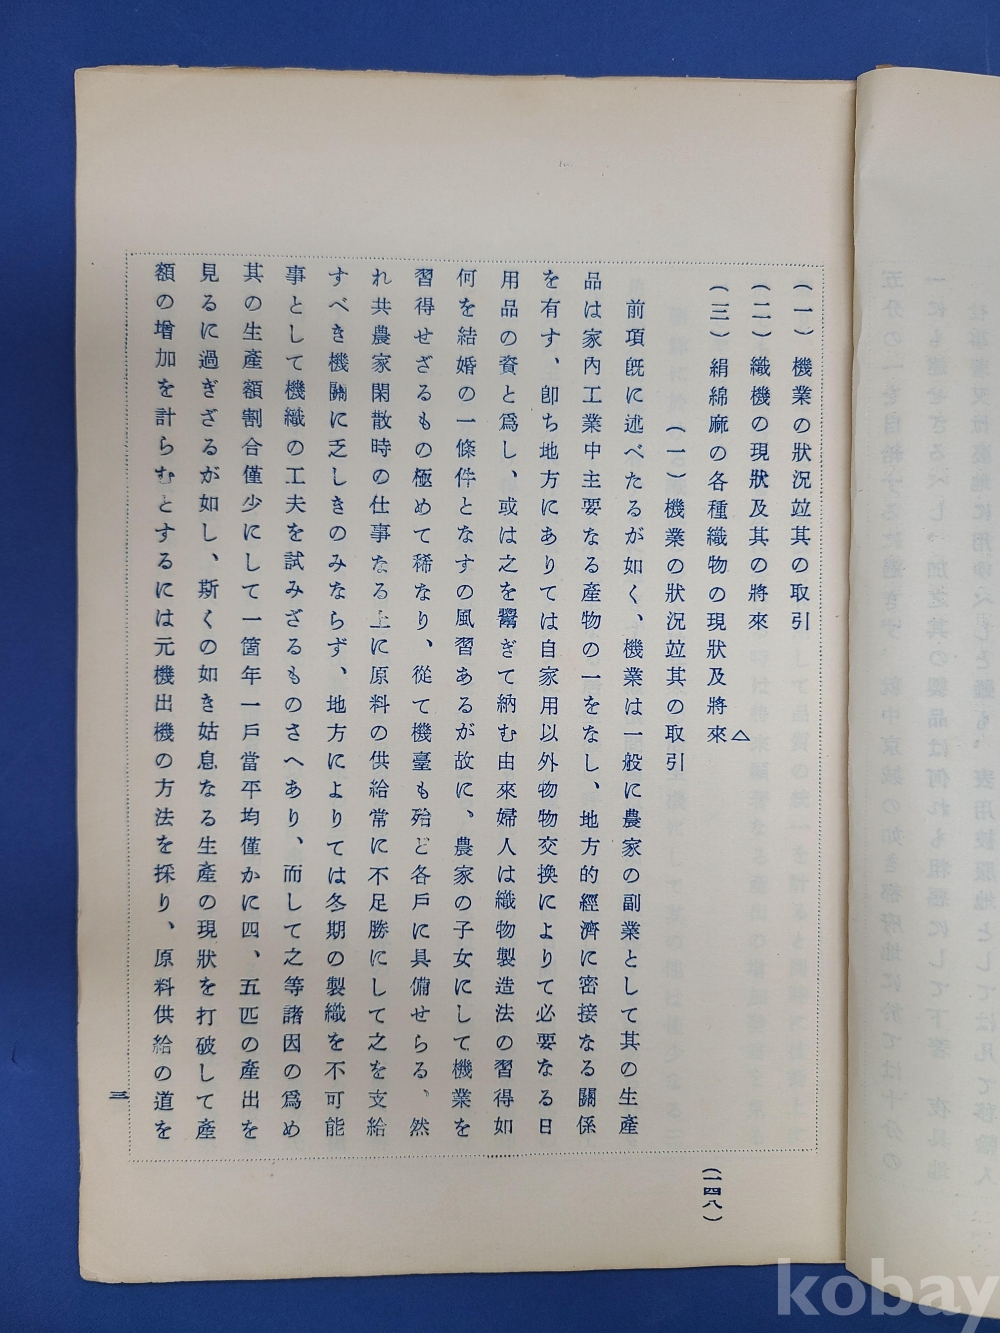 (一) 機業の狀況竝其の取引
(二) 織機の現狀及其の將來
(三) 絹綿麻の各種織物の現狀及將來
(一) 機業の狀況竝其の取引
前項旣に述べたるが如く、機業は一般に農家の副業として其の生產
品は家內工業中主要なる產物の一をなし、地方的經濟に密接なる關係
を有す、卽ち地方にありては自家用以外物物交換によりて必要なる日
用品の資と爲し、或は之を鬻ぎて納む由來婦人は織物製造法の習得如
何を結婚の一條件となすの風習あるが故に、農家の子女にして機業を
習得せざるもの極めて稀なり、從て機臺も殆ど各戶に具備せらる、然
れ共農家閑散時の仕事なる上に原料の供給常に不足勝にして之を支給
すべき機關に乏しきのみならず、地方によりては冬期の製織を不可能
事として機織の工夫を試みざるものさへあり、而して之等諸因の爲め
其の生產額割合僅少にして一箇年一戶當平均僅かに四、五匹の產出を
見るに過ぎざるが如し、斯くの如き姑息なる生產の現狀を打破して產
額の增加を計らむとするには元機出機の方法を採り、原料供給の道を
三
(一四八)
kobay